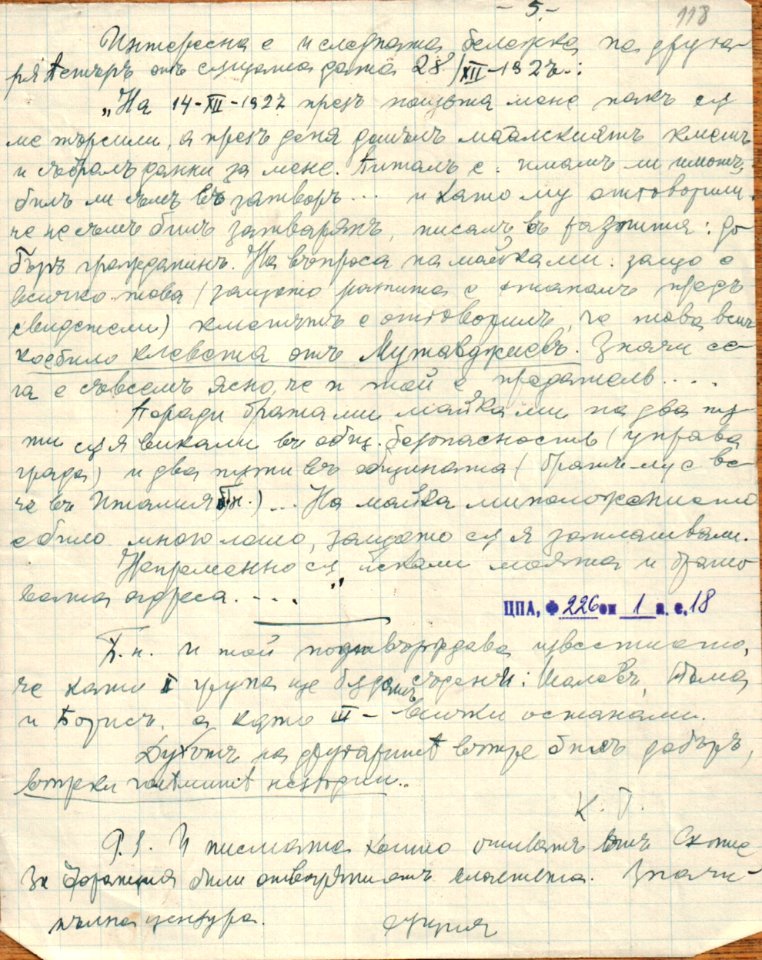 - 5. -
118
Интересна е и следната бележка на друга-
ря Петъръ отъ същата дата 28/XII-1927.:
„На 14-XII-1927 презъ нощьта мене пакъ съ
ме търсили, а презъ деня дошълъ маалскиятъ кметъ
и събралъ данни за мене. Питалъ е: имамъ ли имотъ,
билъ ли съмъ въ затворъ... и като му отговорили,
че не съмъ билъ затварянъ, писалъ въ : до-
бъръ гражданинъ. На въпроса на майка ми: защо е
всичко това (защото е станалъ предъ
свидетели) кметътъ е отговорилъ, че това всич-
ко е било клевета отъ Мутавджиевъ. Значи се-
га е съвсемъ ясно, че и той е предатель....
Поради брата ми майка ми на два пъ-
ти съ я викали въ общ. безопасность (управа
града) и два пъти въ общината (братъ му е ве-
че въ Италия бл.)... На майка ми положението
е било много лошо, защото съ я заплашвали.
Непременно съ искали моята и брато-
вата адреса.... "
ЦПА, Ф 226 оп 1 а. е. 18
П. н. и той подтвърждава известието,
че като II група ще бъдатъ съдени: Шалевъ, Тома
и Борисъ, а като III - всички останали.
Духътъ на другарите вътре билъ добъръ,
въпреки големите несгоди..
К. П.
P.S. И писмата които отиватъ отъ Скопие
за Франция били отваряни отъ властьта. Значи
пълна цензура.